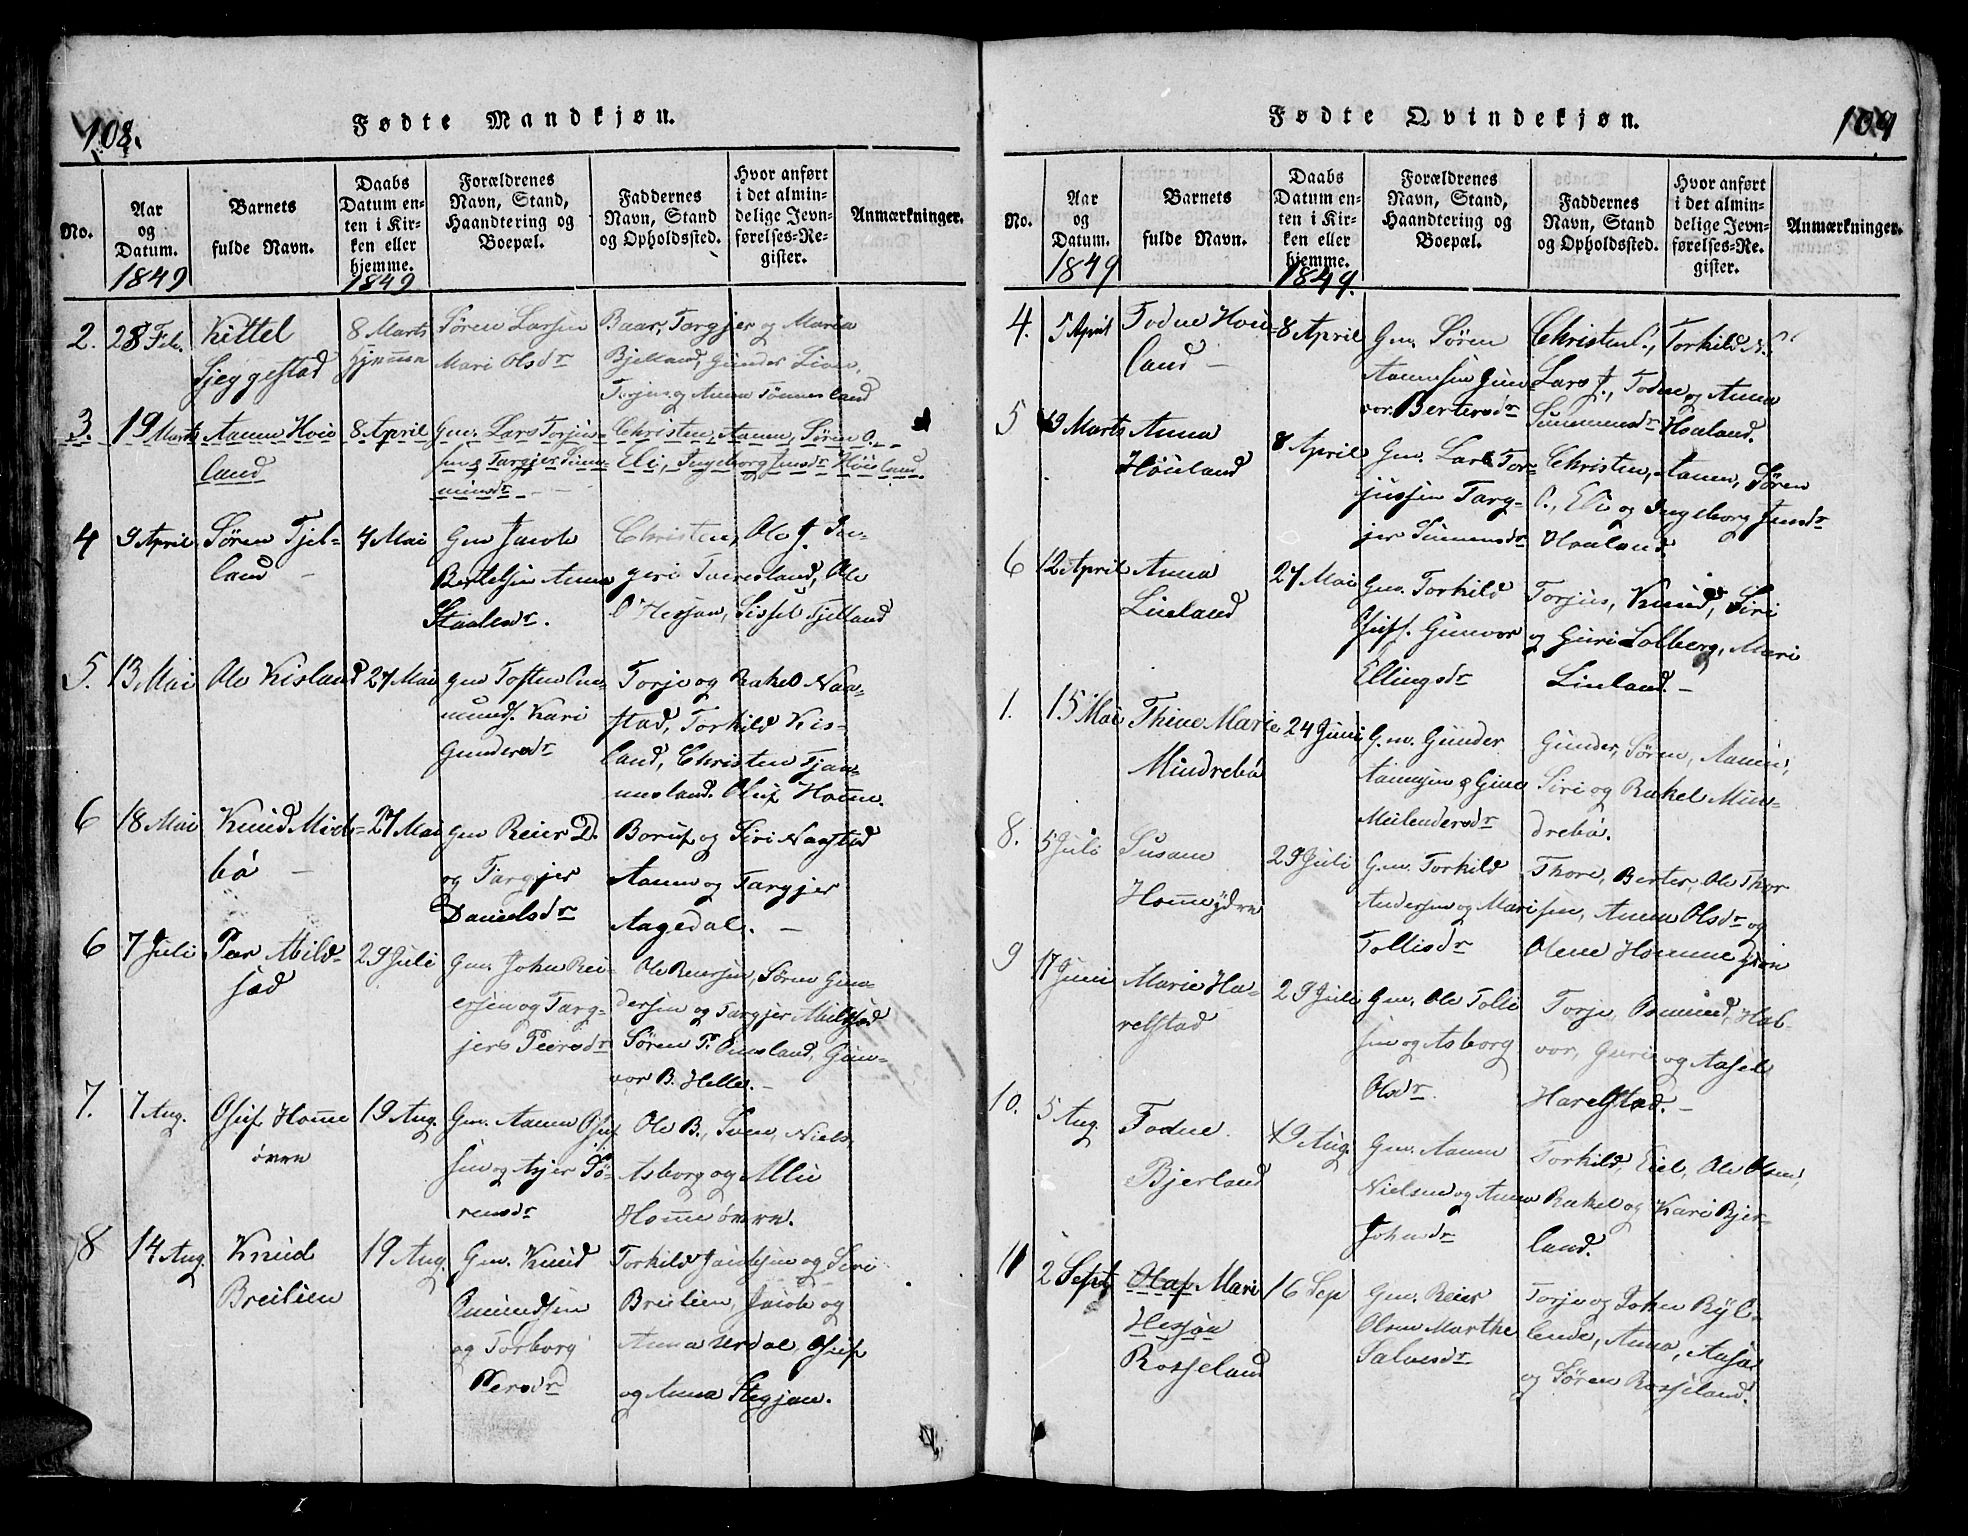 108.
Fødte Mandkjøn.
No.
Aar
og
Datum.
1849
Barnets
fulde Navn.
Daabs
Datum en-
ten i Kir-
ken eller
hjemme.
1849
Forældrenes
Navn, Stand,
Haandtering og
Boepæl.
Faddernes
Navn, Stand
og Opholdssted.
Hvor anført
i det almin-
delige Jevn-
førelses-Re-
gister.
Anmærkninger.
2. 28 Feb. Kittel
Sjeggestad
8 Marts
hjemme
Søren Larsen
Mari Olsdr
Baar, Targjer og Maria
Bjelland, Gunder Live,
Torjus og Anna Tønnesland
3. 19 Marts Aanen Høie
land
8 April
Gm. Lars Torjus-
sen Targjer Sune
minsdr
Christen, Aanen, Søren O.
Eli, Ingeborg Jensdr Høieland
4 9 April Søren Tjel-
land
7 Mai
Gm Jacob
Bertelsen Anna
Staalesdr.
Christen, Ole J. In-
geri Tveresland, Ole
O Hesjan, Sissel Tjelland
5. 13 Mai Ole Kisland
27 Mai
Gm Tosten Om-
munds. Kari
Gundersdr
Torje og Rakel Naa-
stad, Torkild Kis-
land, Christen Tjom-
mesland. Oluf Homme.
6 18 Mai Knud Midt-
bø
27 Mai
Gm Reier D.
og Targjer
Danielsdr
Boruf og Siri Nagstad
Aanen og Targjer
Aagedal.
6 7 Juli Peer Mild-
stad
29 Juli
Gm. John Rei-
ersen og Targ-
jers Peersdr
Ole Reiersen, Søren Gun-
dersen og Targjer Mildstad
Søren P. Omsland, Gun-
vor B. Helle.
7. 7 Aug. Osuf Homme
øvre
19 Aug.
Gm. Aanen Osuf
sen og Asjer Sø-
rensdr
Ole B., Sven, Niels,
Asborg og Allis
Homme øvre.
8 14 Aug. Knud
Breilien
19 Aug.
Gm. Knud
Omundsen
og Torborg
Persdr
Torkild Jacobsen og Siri
Breilien, Jacob og
Anna Urdal, Osuf
og Anna Stegjan.
109
Fødte Qvindekjøn.
No.
Aar
og
Datum.
1849
Barnets
fulde Navn.
Daabs
Datum en-
ten i Kir-
ken eller
hjemme.
1849.
Forældrenes
Navn, Stand,
Haandtering og
Boepæl.
Faddernes
Navn, Stand
og Opholdssted.
Hvor anført
i det almin-
delige Jevn-
førelses-Re-
gister.
Anmærkninger.
4. 5 April Todne Høie
land
8 April
Gm. Søren
Aanensen Gun
vor Bertersdr
Christen C., Torkild N.
Lars J., Todne og Anna
Sunemsdr Høieland.
5 19 Marts Anna
Høieland
8 April
Gm. Lars Tor-
jussen Targ-
jer Sunemsdr
Christen, Aanen, Søren
O., Eli og Ingeborg Jensdr
Høieland
6 12 April Anna
Lieland
27 Mai
Gm. Torkild
Osufs. Gunvor
Ellingsdr
Torjus, Knud, Siri
og Guri Solberg, Mari
Lieland.
1. 15 Mai Thine Marie
Mindrebø
24 Juni
Gm. Gunder
Aanensen & Gina
Meilendersdr
Gunder, Søren, Aanen,
Siri og Rakel Min-
drebø.
8. 5 Juli Susane
Homme ydre
29 Juli
Gm. Torkild
Andersen og Mari
Tollisdr
Thore, Berter, Ole Thor
sen, Anna Olsdr og
Olene Homme ydre
9 17 Juni Marie Ha-
relstad
29 Juli
Gm. Ole Tolli
sen og Asborg
Olsdr.
Torje, Omund, Hal-
vor, Guri og Aasel
Harelstad.
10. 5 Aug. Todne
Bjerland
19 Aug.
Gm. Aanen
Nielsen og Anna
Johnsdr
Torkild, Eiel, Ole Olsen,
Rakel og Kari Bjer-
land.
11 2 Sept. Olaf Mari
Hesjan
Rosseland
16 Sep
Gm. Reier
Olsen Marthe
Salvesdr
Torje og John Ryl-
lende, Anna, Aasa
og Søren Rosseland.